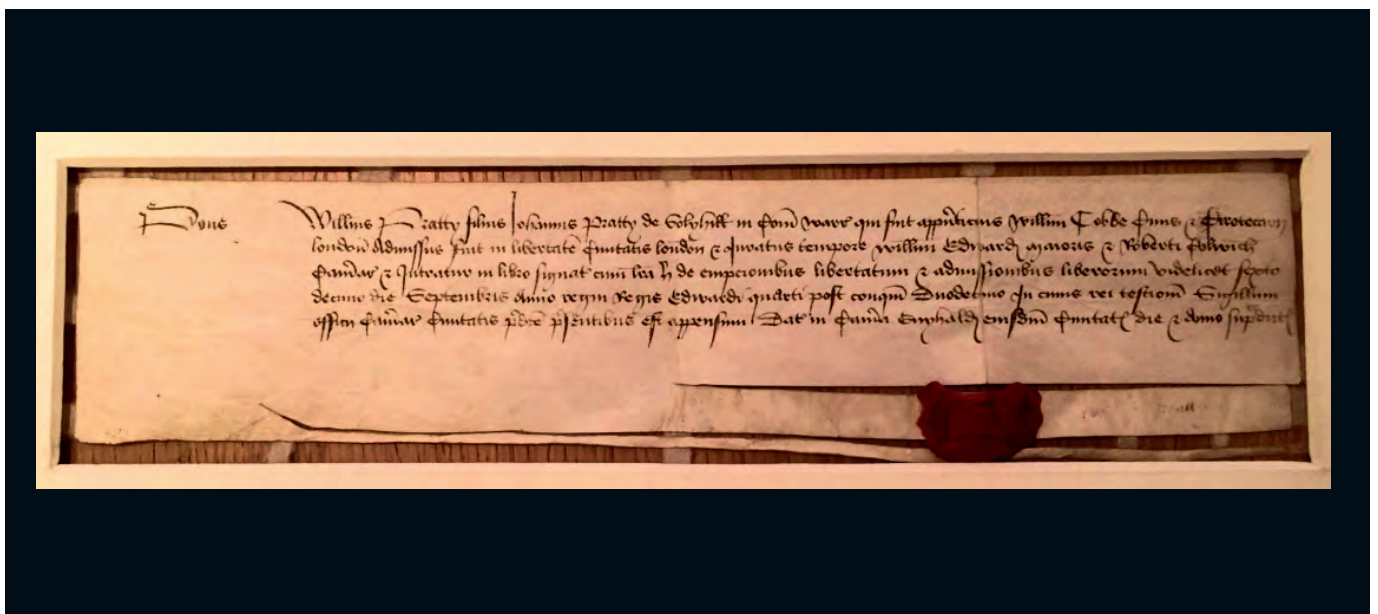 Willms Pratty filius Johannis Pratty de Solyhull in Com Warr qui fuit apprenticius Willmi Cobbe Civis &
london Admissus fuit in libertate Civitatis london & Juratus tempore Willmi Edward maioris & Roberti Colwich
Camar & Intratur in libro signat cum lra de empcionibus libertatum & admissionibus liberorum videlicet sexto
decimo die Septembris Anno regni Regis Edwardi quarti post conqm Duodecimo In cuius rei testiom Sigillum
officii Camar Civitatis pdce psentibus est appensum Dat in Camera Guyhald eiusdm Civitat die & Anno supdict